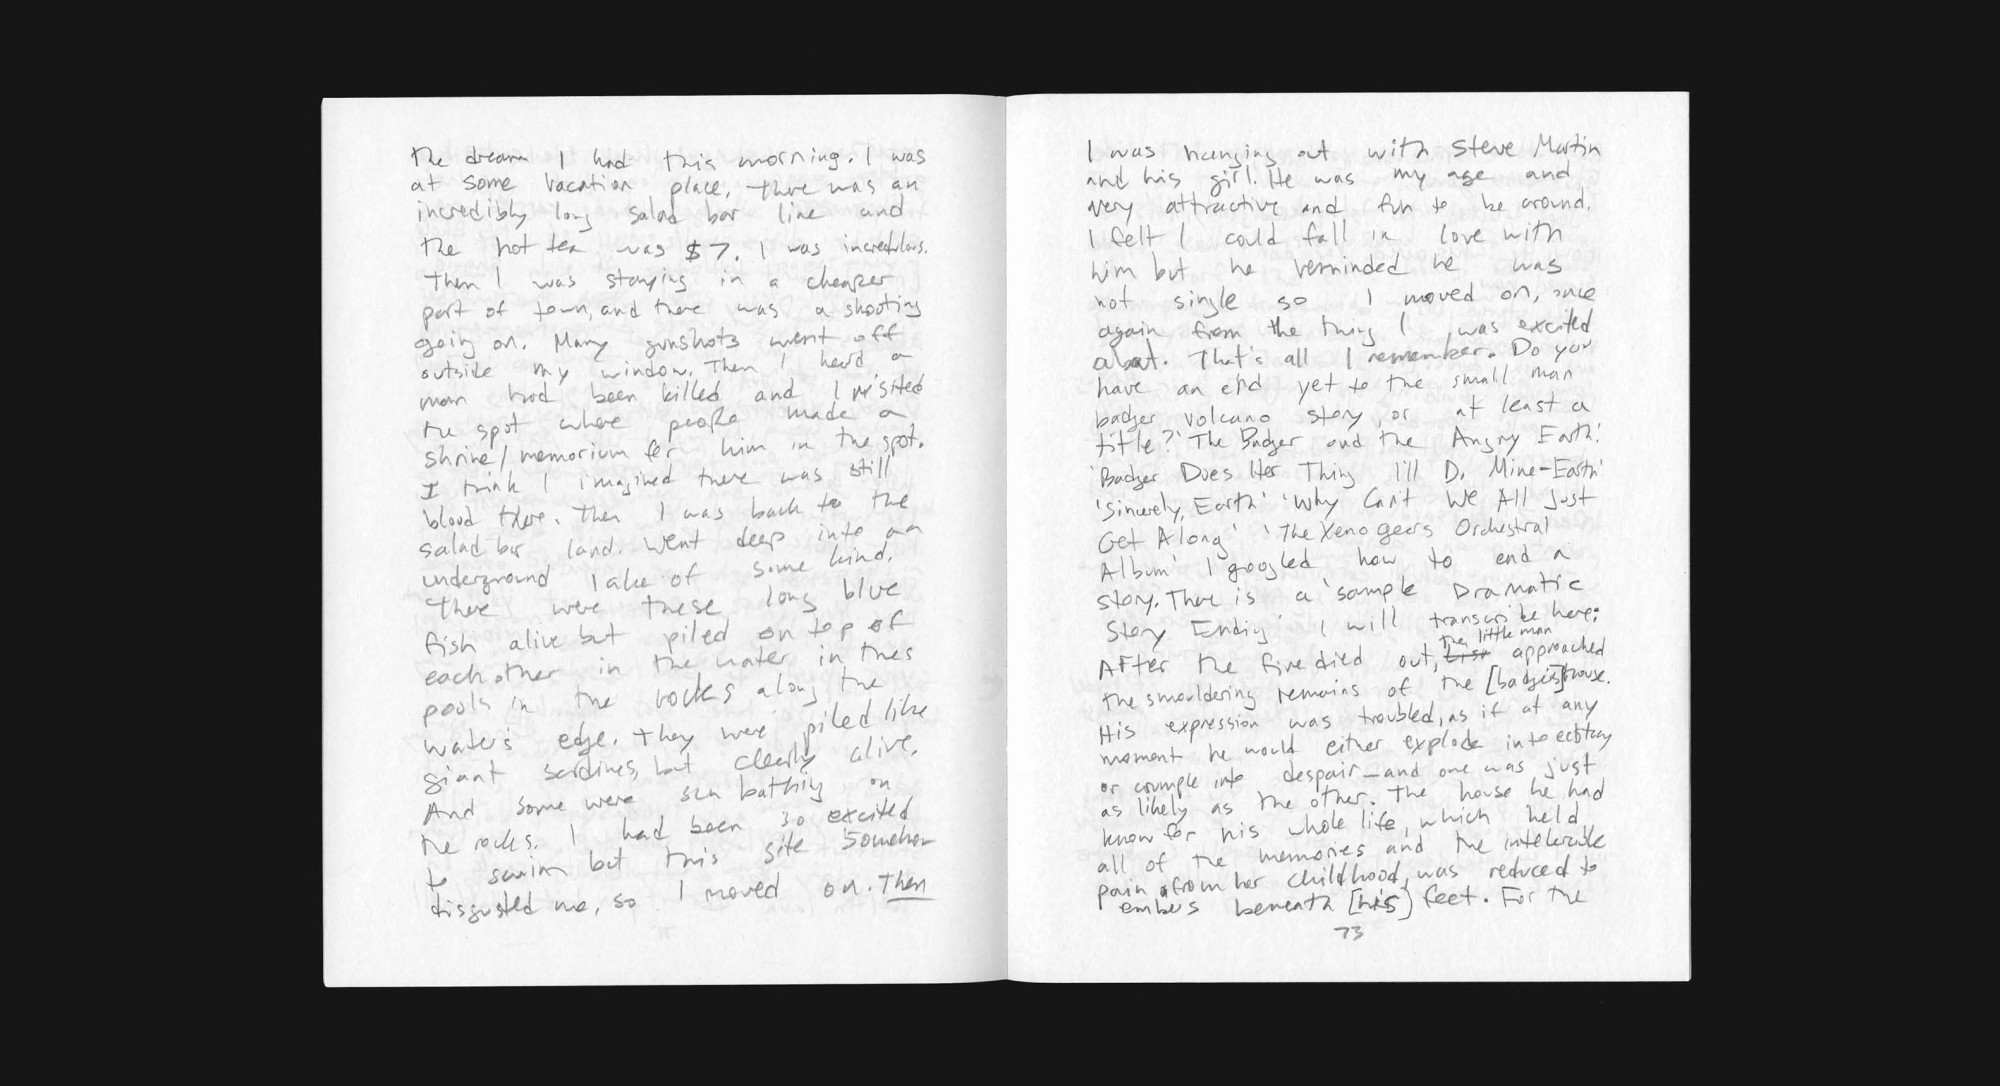 the dream I had this morning. I was
at some vacation place, there was an
incredibly long salad bar line and
the hot tea was $7. I was incredulous.
Then I was staying in a cheaper
part of town, and there was a shooting
going on. Many gunshots went off
outside my window. Then I heard a
man had been killed and I visited
the spot where people made a
shrine/memorium for him in the spot.
I think I imagined there was still
blood there. Then I was back to the
salad bar land. Went deep into an
underground lake of some kind.
There were these long blue
fish alive but piled on top of
each other in the water in thes
pools in the rocks along the
water's edge. They were piled like
giant sardines, but clearly alive.
And some were sun bathing on
the rocks. I had been so excited
to swim but this site somehow
disgusted me, so I moved on. Then
I was hanging out with Steve Martin
and his girl. He was my age and
very attractive and fun to be around.
I felt I could fall in love with
him but he reminded he was
not single so I moved on, once
again from the thing I was excited
about. That's all I remember. Do you
have an end yet to the small man
badger volcano story, or at least a
title? 'The Badger and the Angry Earth'
'Badger Does Her Thing I'll D. Mine-Earth'
'Sincerely, Earth' 'Why Can't We All Just
Get Along' 'The Xenogears Orchestral
Album' I googled how to end a
story. There is a 'Sample Dramatic
Story Ending' I will transcribe here:
After the fire died out, the little man approached
the smouldering remains of the [badger's] house.
His expression was troubled, as if at any
moment he would either explode into ecstasy
or crumple into despair—and one was just
as likely as the other. The house he had
know for his whole life, which held
all of the memories and the intolerable
pain from her childhood, was reduced to
embers beneath [his] feet. For the
73